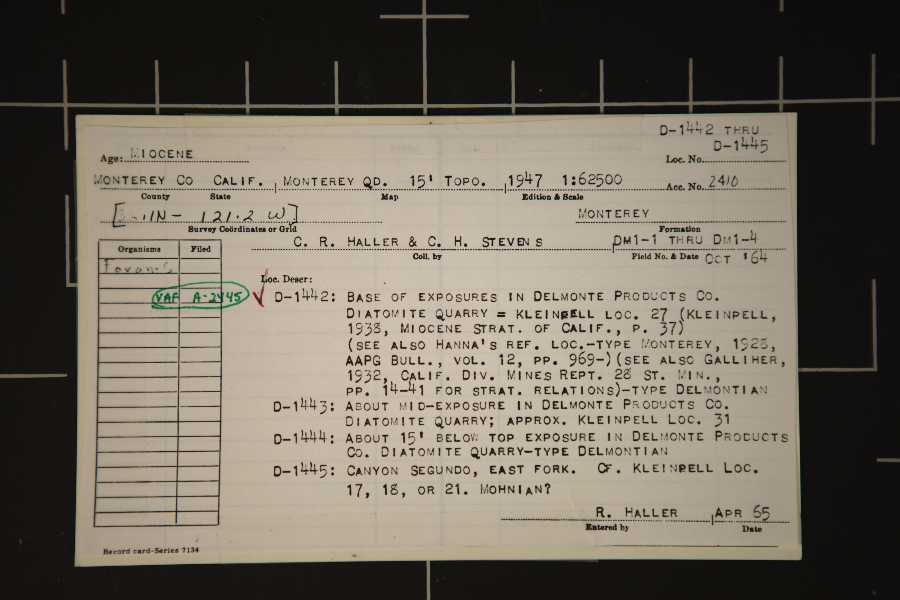 D-1442 THRU
D-1445
Age: MIOCENE
Loc. No.
MONTEREY CO CALIF. MONTEREY QD. 15' TOPO. 1947 1:62500 Acc. No. 2410
County State Map Edition & Scale
N- 121.2 W] MONTEREY
Survey Coördinates or Grid Formation
C. R. HALLER & C. H. STEVENS DM1-1 THRU DM1-4
Coll. by Field No. & Date OCT '64
Organisms Filed
Forams
Loc. Descr:
VAF A-2445 ✓ D-1442: BASE OF EXPOSURES IN DELMONTE PRODUCTS CO.
DIATOMITE QUARRY = KLEINPELL LOC. 27 (KLEINPELL,
1938, MIOCENE STRAT. OF CALIF., P. 37)
(SEE ALSO HANNA'S REF. LOC.-TYPE MONTEREY, 1928,
AAPG BULL., VOL. 12, PP. 969-)(SEE ALSO GALLIHER,
1932, CALIF. DIV. MINES REPT. 28 ST. MIN.,
PP. 14-41 FOR STRAT. RELATIONS)-TYPE DELMONTIAN
D-1443: ABOUT MID-EXPOSURE IN DELMONTE PRODUCTS CO.
DIATOMITE QUARRY; APPROX. KLEINPELL LOC. 31
D-1444: ABOUT 15' BELOW TOP EXPOSURE IN DELMONTE PRODUCTS
CO. DIATOMITE QUARRY-TYPE DELMONTIAN
D-1445: CANYON SEGUNDO, EAST FORK. CF. KLEINPELL LOC.
17, 18, OR 21. MOHNIAN?
R. HALLER APR 65
Entered by Date
Record card-Series 7134